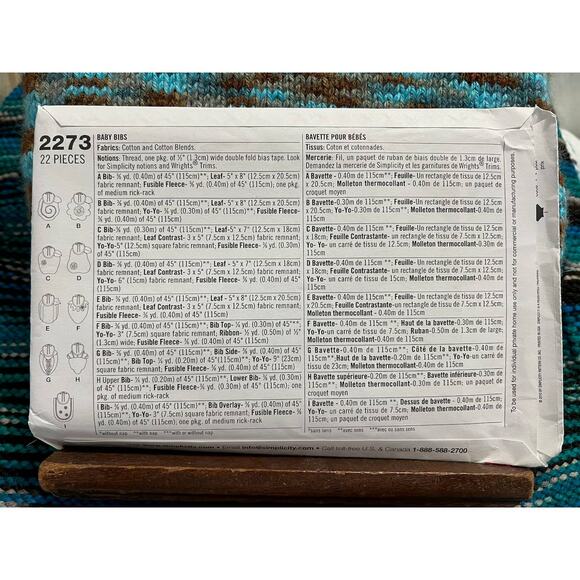 2273
22 PIECES
BABY BIBS
Fabrics: Cotton and Cotton Blends.
Notions: Thread, one pkg. of ½" (1.3cm) wide double fold bias tape. Look
for Simplicity notions and Wrights® Trims.
A Bib- ⅜ yd. (0.40m) of 45" (115cm)**; Leaf- 5" x 8" (12.5cm x 20.5cm)
fabric remnant; Fusible Fleece- ⅜ yd. (0.40m) of 45" (115cm); one pkg.
of medium rick-rack
B Bib- yd. (0.40m) of 45" (115cm)**; Leaf- 5" x 8" (12.5cm x 20.5cm)
fabric remnant; Yo-Yo- yd. (0.30m) of 45" (115cm)**; Fusible Fleece-
yd. (0.40m) of 45" (115cm)
C Bib- yd. (0.40m) of 45" (115cm)**; Leaf- 5" x 7" (12.5cm x 18cm)
fabric remnant; Leaf Contrast- 3 x 5" (7.5cm x 12.5cm) fabric remnant;
Yo-Yo-5" (12.5cm) square fabric remnant; Fusible Fleece- yd. (0.30m)
of 45" (115cm)
D Bib- yd. (0.40m) of 45" (115cm)**; Leaf- 5" x 7" (12.5cm x 18cm)
fabric remnant; Leaf Contrast- 3 x 5" (7.5cm x 12.5cm) fabric remnant;
Yo-Yo- 6" (15cm) fabric remnant; Fusible Fleece- yd. (0.40m) of 45"
(115cm)
E Bib- yd. (0.40m) of 45" (115cm)**; Leaf- 5" x 8" (12.5cm x 20.5cm)
fabric remnant; Leaf Contrast- 3 x 5" (7.5cm x 12.5cm) fabric remnant;
Fusible Fleece- yd. (0.40m) of 45" (115cm)
F Bib- yd. (0.40m) of 45" (115cm)**; Bib Top- yd. (0.30m) of 45"**
Yo-Yo- 3" (7.5cm) square fabric remnant; Ribbon- ½ yd. (0.50m) of ½"
(1.3cm) wide; Fusible Fleece- yd. (0.40m) of 45" (115cm)
G Bib- yd. (0.40m) of 45" (115cm)**; Bib Side- yd. (0.40m) of 45"
(115cm)**; Bib Top- yd. (0.20m) of 45" (115cm)**; Yo-Yo- 9" (23cm)
square fabric remnant; Fusible Fleece- yd. (0.40m) of 45" (115cm)
H Upper Bib- yd. (0.20m) of 45" (115cm)**; Lower Bib- yd. (0.30m)
of 45" (115cm)**; Fusible Fleece- yd. (0.30m) of 45" (115cm); one
pkg. of medium rick-rack
I Bib- yd. (0.40m) of 45" (115cm)**; Bib Overlay- yd. (0.40m) of 45"
(115cm)**; Yo-Yo- 3" (7.5cm) square fabric remnant; Fusible Fleece-
yd. (0.40m) of 45" (115cm); one pkg. of medium rick-rack
*without nap **with nap ***with or without nap
BAVETTE POUR BÉBÉS
Tissus: Coton et cotonnades.
Mercerie: Fil, un paquet de ruban de biais double de 1.3cm de large.
Demandez la mercerie de Simplicity et les garnitures de Wrights® Trims.
A Bavette - 0.40m de 115cm**; Feuille- Un rectangle de tissu de 12.5cm
x 20.5cm; Molleton thermocollant- 0.40m de 115cm; un paquet de
croquet moyen
B Bavette-0.30m de 115cm**; Feuille- Un rectangle de tissu de 12.5cm
x 20.5cm; Yo-Yo-0.30m de 115cm**; Molleton thermocollant-0.30m de
115cm
C Bavette-0.40m de 115cm**; Feuille- un rectangle de tissu de 12.5cm
x 18cm; Feuille Contrastante- un rectangle de tissu de 7.5cm x 12.5cm;
Yo-Yo- un carré de tissu de 12.5cm; Molleton thermocollant-0.30m
de 115cm
D Bavette-0.40m de 115cm**; Feuille- Un rectangle de tissu de 12.5cm
x 18cm; Feuille Contrastante- un rectangle de tissu de 7.5cm x 12.5cm;
Yo-Yo- un carré de tissu de 15cm; Molleton thermocollant-0.40m de
115cm
E Bavette-0.40m de 115cm**; Feuille- Un rectangle de tissu de 12.5cm
x 20.5cm; Feuille Contrastante- Un rectangle de tissu de 7.5cm x 12.5cm;
Molleton thermocollant-0.40m de 115cm
F Bavette-0.40m de 115cm**; Haut de la bavette-0.30m de 115cm**;
Yo-Yo- un carré de tissu de 7.5cm; Ruban-0.50m de 1.3cm de large;
Molleton thermocollant-0.40m de 115cm
G Bavette-0.40m de 115cm**; Côté de la bavette-0.40m de
115cm**; Haut de la bavette-0.20m de 115cm**; Yo-Yo- un carré de
tissu de 23cm; Molleton thermocollant-0.40m de 115cm
H Bavette supérieure-0.20m de 115cm**; Bavette inférieure-0.30m
de 115cm**; Molleton thermocollant-0.30m de 115cm; un paquet de
croquet moyen
I Bavette - 0.40m de 115cm**; Dessus de bavette - 0.40m de
115cm**; Yo-Yo- un carré de tissu de 7.5cm; Molleton thermocollant-
0.40m de 115cm; un paquet de croquet moyen
*sans sens **avec sens ***avec ou sans sens
A
B
C
D
E
F
G
H
I
To be used for individual private home use only and not for commercial or manufacturing purposes.
.simplicity.com • Email info@simplicity.com • Call toll-free U.S. & Canada 1-888-588-2700